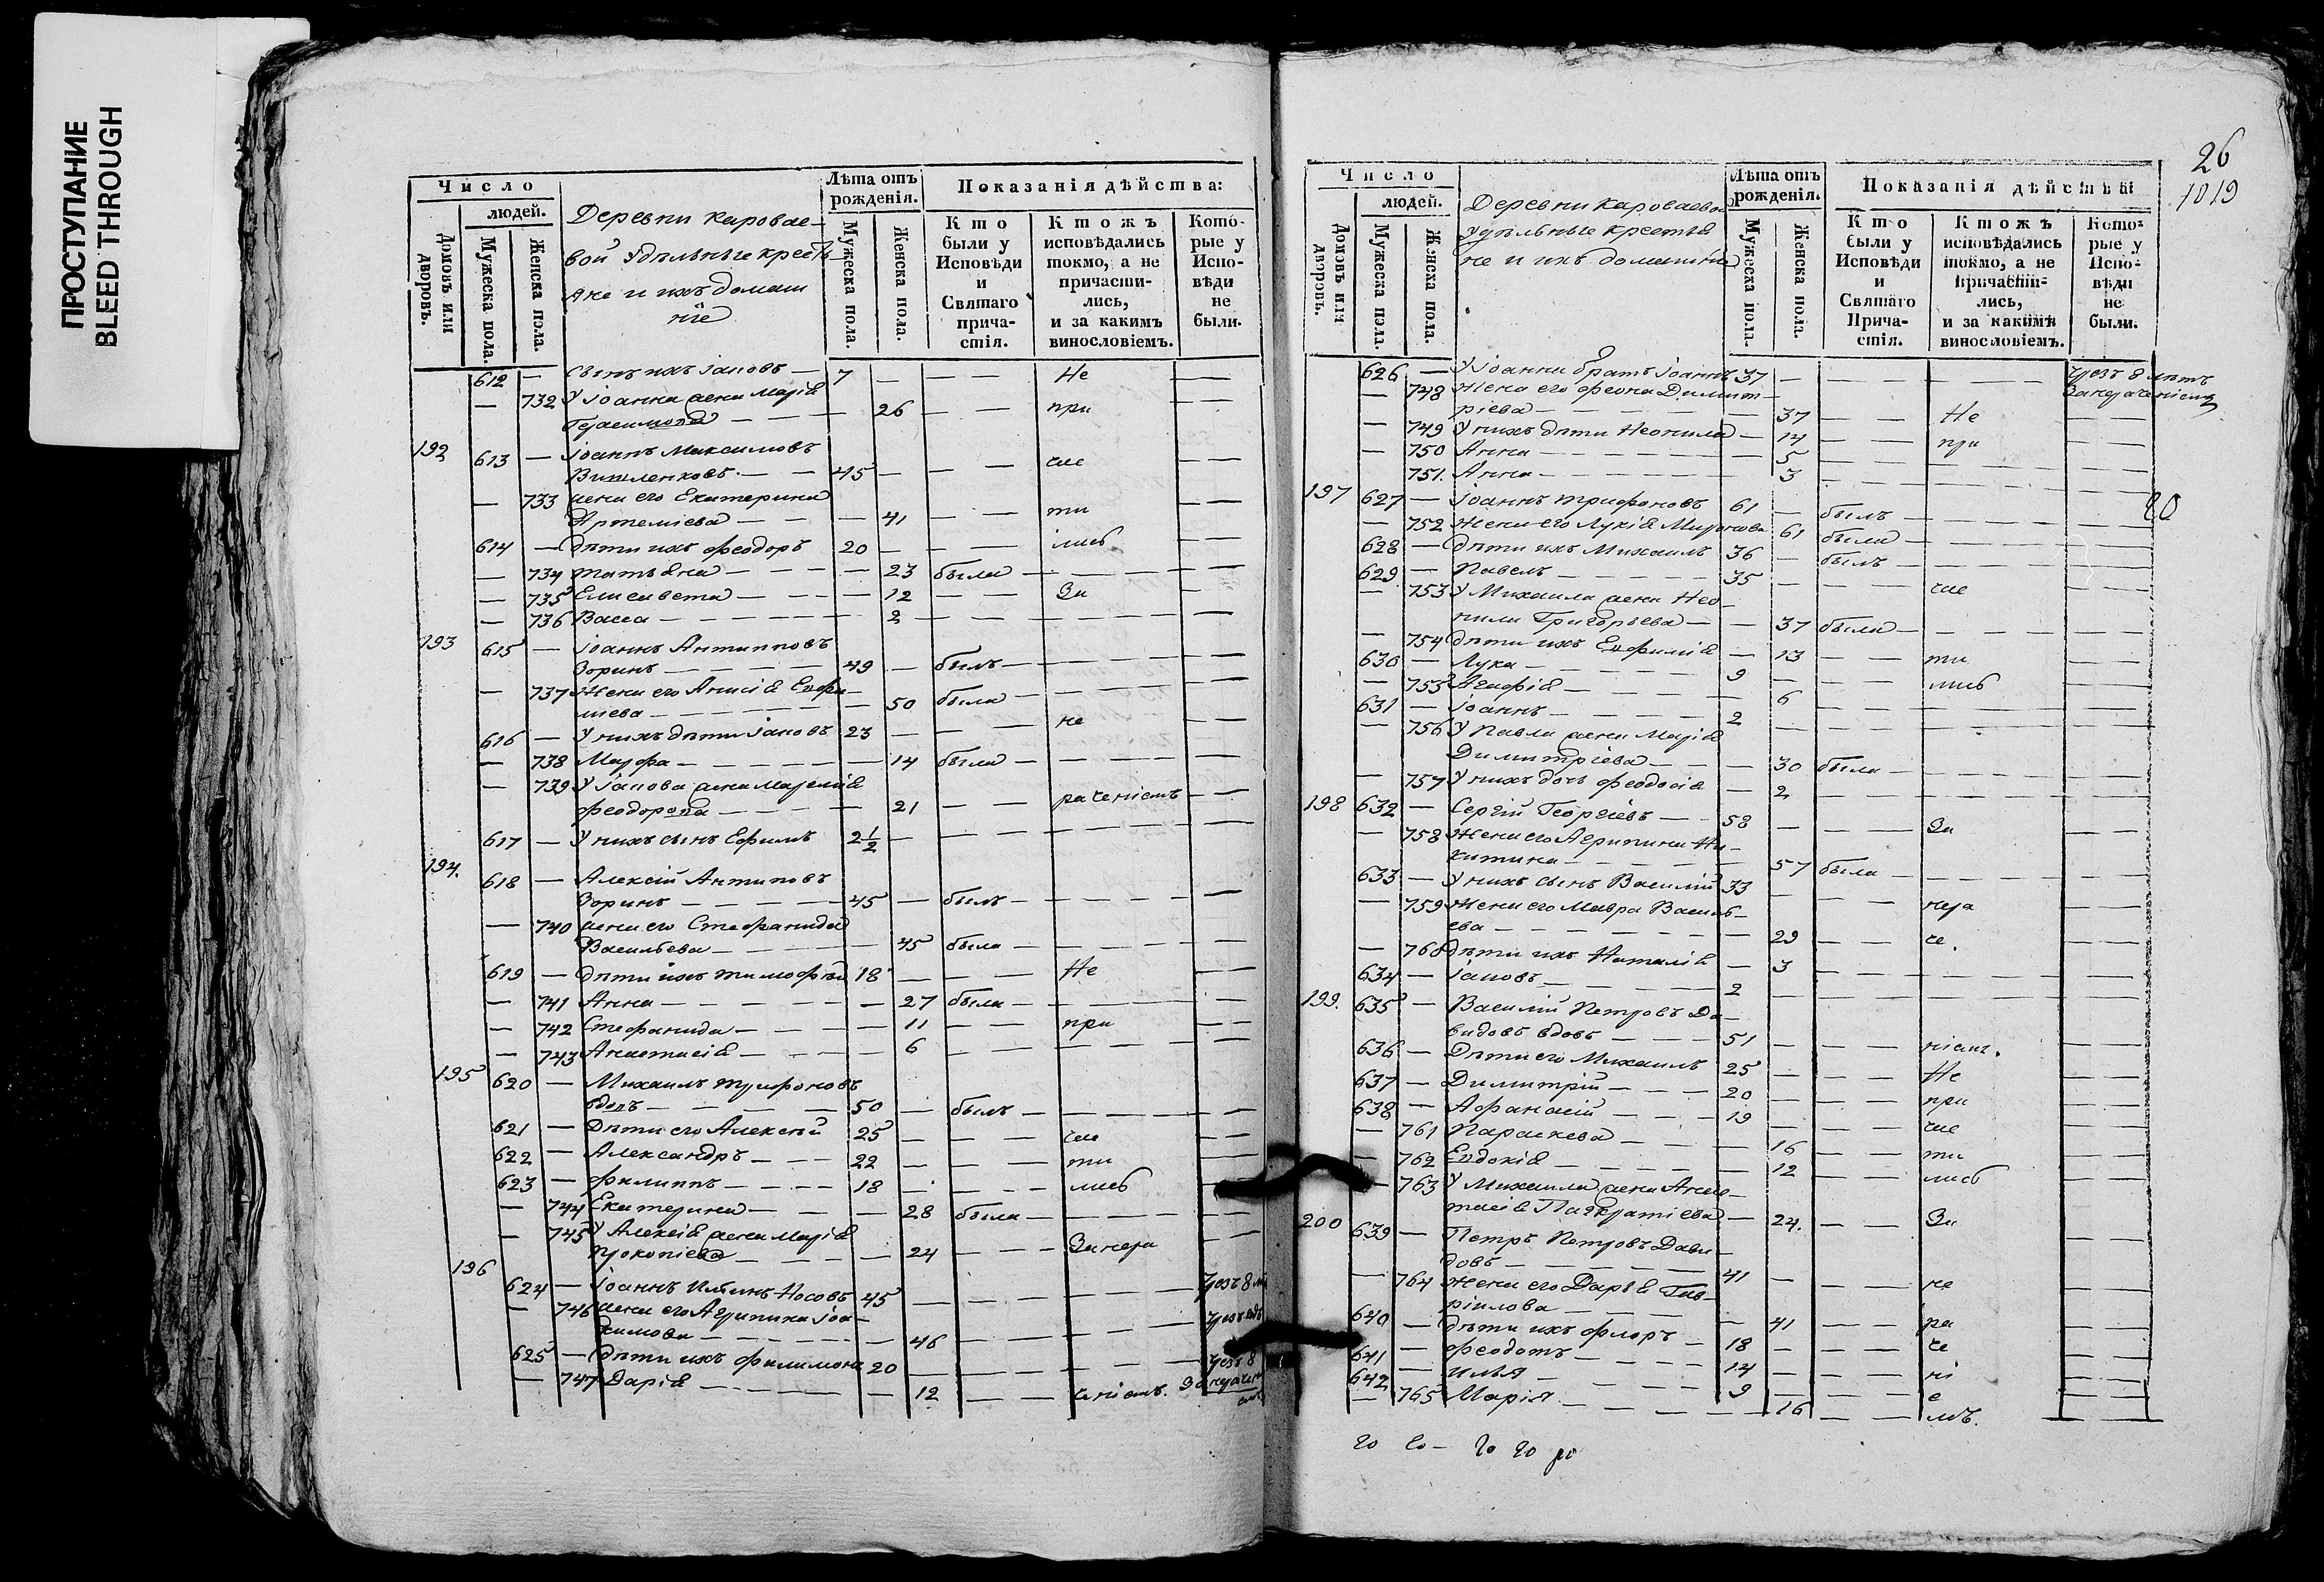 ПРОСТУПАНИЕ
BLEED THROUGH
Число
людей.
Домовъ или дворовъ.
Мужеска пола.
Женска пола.
Деревни Каровае-
вой удѣльные кресть-
яне и ихъ домаш
ніе
Лѣта отъ рожденія.
Мужеска пола.
Женска пола.
Показанія дѣйства:
Кто были у Исповѣди и Святаго причастія.
Ктожъ исповѣдались токмо, а не причастились, и за какимъ винословіемъ.
Которые у Исповѣди не были.
612 — сынъ ихъ Іаковъ — 7 — — — Не —
— 732 У Іоанна жена Марія
Герасимова — — 26 — — при —
192 613 — Іоаннъ Максимовъ
— — 45 — — — час —
— 733 жена его Екатерина
Артеміева — — — 41 — — ти —
614 — дѣти ихъ Феодоръ 20 — — — лись —
— 734 Татьяна — — — 23 была — — —
— 735 Елисавета — — — 12 — — За —
— 736 Васса — — — 2 — — — —
193 615 — Іоаннъ Антиповъ
Зоринъ — — — 49 — былъ — — —
— 737 Жена его Анисія Евфи-
міева — — — 50 была — — —
616 — У нихъ дѣти Іаковъ 23 — — — не —
— 738 Марфа — — — 14 была — — —
— 739 У Іакова жена
Феодорова — — — 21 — — раченіемъ —
617 — У нихъ сынъ Ефимъ 2 1/2 — — — —
194. 618 — Алексій Антиповъ
Зоринъ — — — 45 — былъ — — —
— 740 жена его Стефанида
Васильева — — — 45 была — — —
619 — дѣти ихъ Тимофѣй 18 — — — Не —
— 741 Анна — — — 27 была — — —
— 742 Стефанида — — — 11 — — при —
— 743 Анастасія — — — 6 — — — —
195 620 — Михаилъ Трифоновъ
вдовъ — — — 50 — былъ — — —
621 — Дѣти его Алексѣй 25 — — — час —
622 — Александръ — — 22 — — — ти —
623 — Филиппъ — — — 18 — — — лись
— 744 Екатерина — — — 28 была — — —
— 745 У Алексія жена Марія
Прокопіева — — — 24 — — — За нера —
196 624 — Іоаннъ Носовъ 45 — — — — чрезъ 8
— 746 жена его Агрипина Іоа-
кимова — — — 46 — — — чрезъ
625 — дѣти ихъ Филимонъ 20 — — — — чрезъ 8
— 747 Дарія — — — 12 — — ченіемъ. За
26
1019
Число
людей.
Домовъ или дворовъ.
Мужеска пола.
Женска пола.
Деревни Караваевой
удѣльные крестья
не и ихъ домашніе
Лѣта отъ рожденія.
Мужеска пола.
Женска пола.
Показанія дѣйства:
Кто были у Исповѣди и Святаго Причастія.
Ктожъ исповѣдались токмо, а не причастились, и за какимъ винословіемъ.
Которые у Исповѣди не были.
626 — У Іоанна братъ Іоаннъ 37 — — — — чрезъ 8 лѣтъ
— 748 жена его Феона Димит- за нераченіемъ
ріева — — — 37 — — Не —
— 749 У нихъ дѣти Неонила — 14 — — при —
— 750 Анна — — — 5 — — — —
751. Анна — — — 3 — — — —
197 627 — Іоаннъ Трифоновъ 61 — былъ — — — 20
— 752 Жена его Лукія Миронова 61 была — — —
628 — дѣти ихъ Михаилъ 36 — былъ — — —
629 — Павелъ — — — 35 — — — час —
— 753 У Михаила жена Нео-
нила Григорьева — — 37 была — — —
— 754 дѣти ихъ Евфимія — 13 — — ти —
630 — Лука — — — 9 — — — лись —
— 755 Агафія — — — 6 — — — —
631 — Іоаннъ — — — 2 — — — —
— 756 У Павла жена Марія
Димитріева — — — 30 была — — —
— 757 У нихъ дочь Феодосія — 2 — — — —
198 632 — Сергій Георгіевъ — 58 — — — За —
— 758 Жена его Агрипина Ни-
китина — — — 57 была — — —
633 — У нихъ сынъ Василій 33 — — — нера —
— 759 Жена его Мавра Василь-
ева — — — 29 — — че. —
— 760 дѣти ихъ Наталія — 3 — — — —
634 — Іаковъ — — — 2 — — — —
199. 635 — Василій Петровъ Да-
видовъ вдовъ — — 51 — — — ніемъ. —
636 — Дѣти его Михаилъ 25 — — — Не —
637 — Димитрій — — 20 — — — при —
638 — Афанасій — — 19 — — — час —
— 761 Параскева — — — 16 — — ти —
— 762 Евдокія — — — 12 — — лись —
— 763 У Михаила жена Анас-
тасія Панкратіева — 24. — — За —
200 639 — Петръ Петровъ Дави-
довъ — — — 41 — — — не —
— 764 Жена его Дарья Гав-
ріилова — — — 41 — — ра —
640 — дѣти ихъ Флоръ — 18 — — — че —
641 — Феодотъ — — — 14 — — — ні —
642 — Илья — — — 9 — — — е —
— 765 Марія — — — 16 — — мъ. —